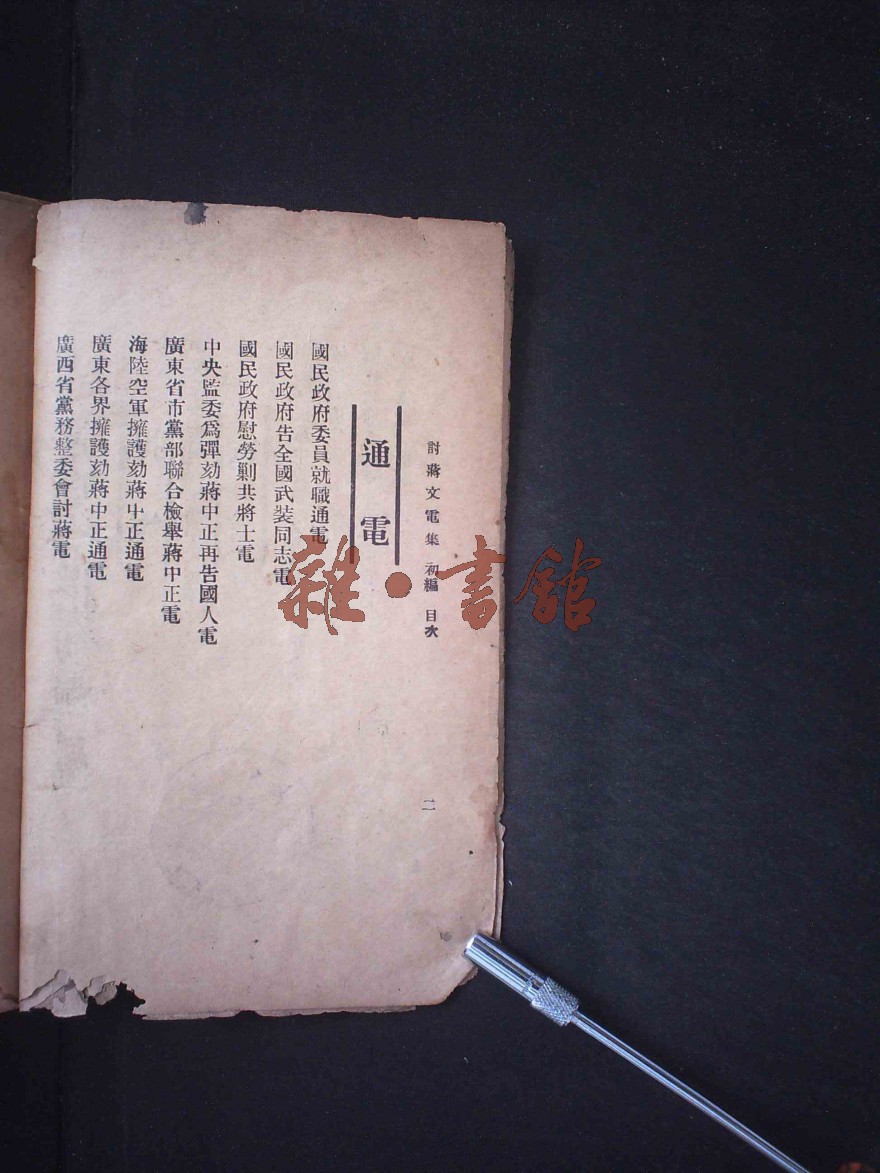 討蔣文電集 初編 目次 二
通電
國民政府委員就職通電
國民政府告全國武裝同志電
國民政府慰勞剿共將士電
中央監委爲彈劾蔣中正再告國人電
廣東省市黨部聯合檢舉蔣中正電
海陸空軍擁護劾蔣中正通電
廣東各界擁護劾蔣中正通電
廣西省黨務整委會討蔣電
雜·書館